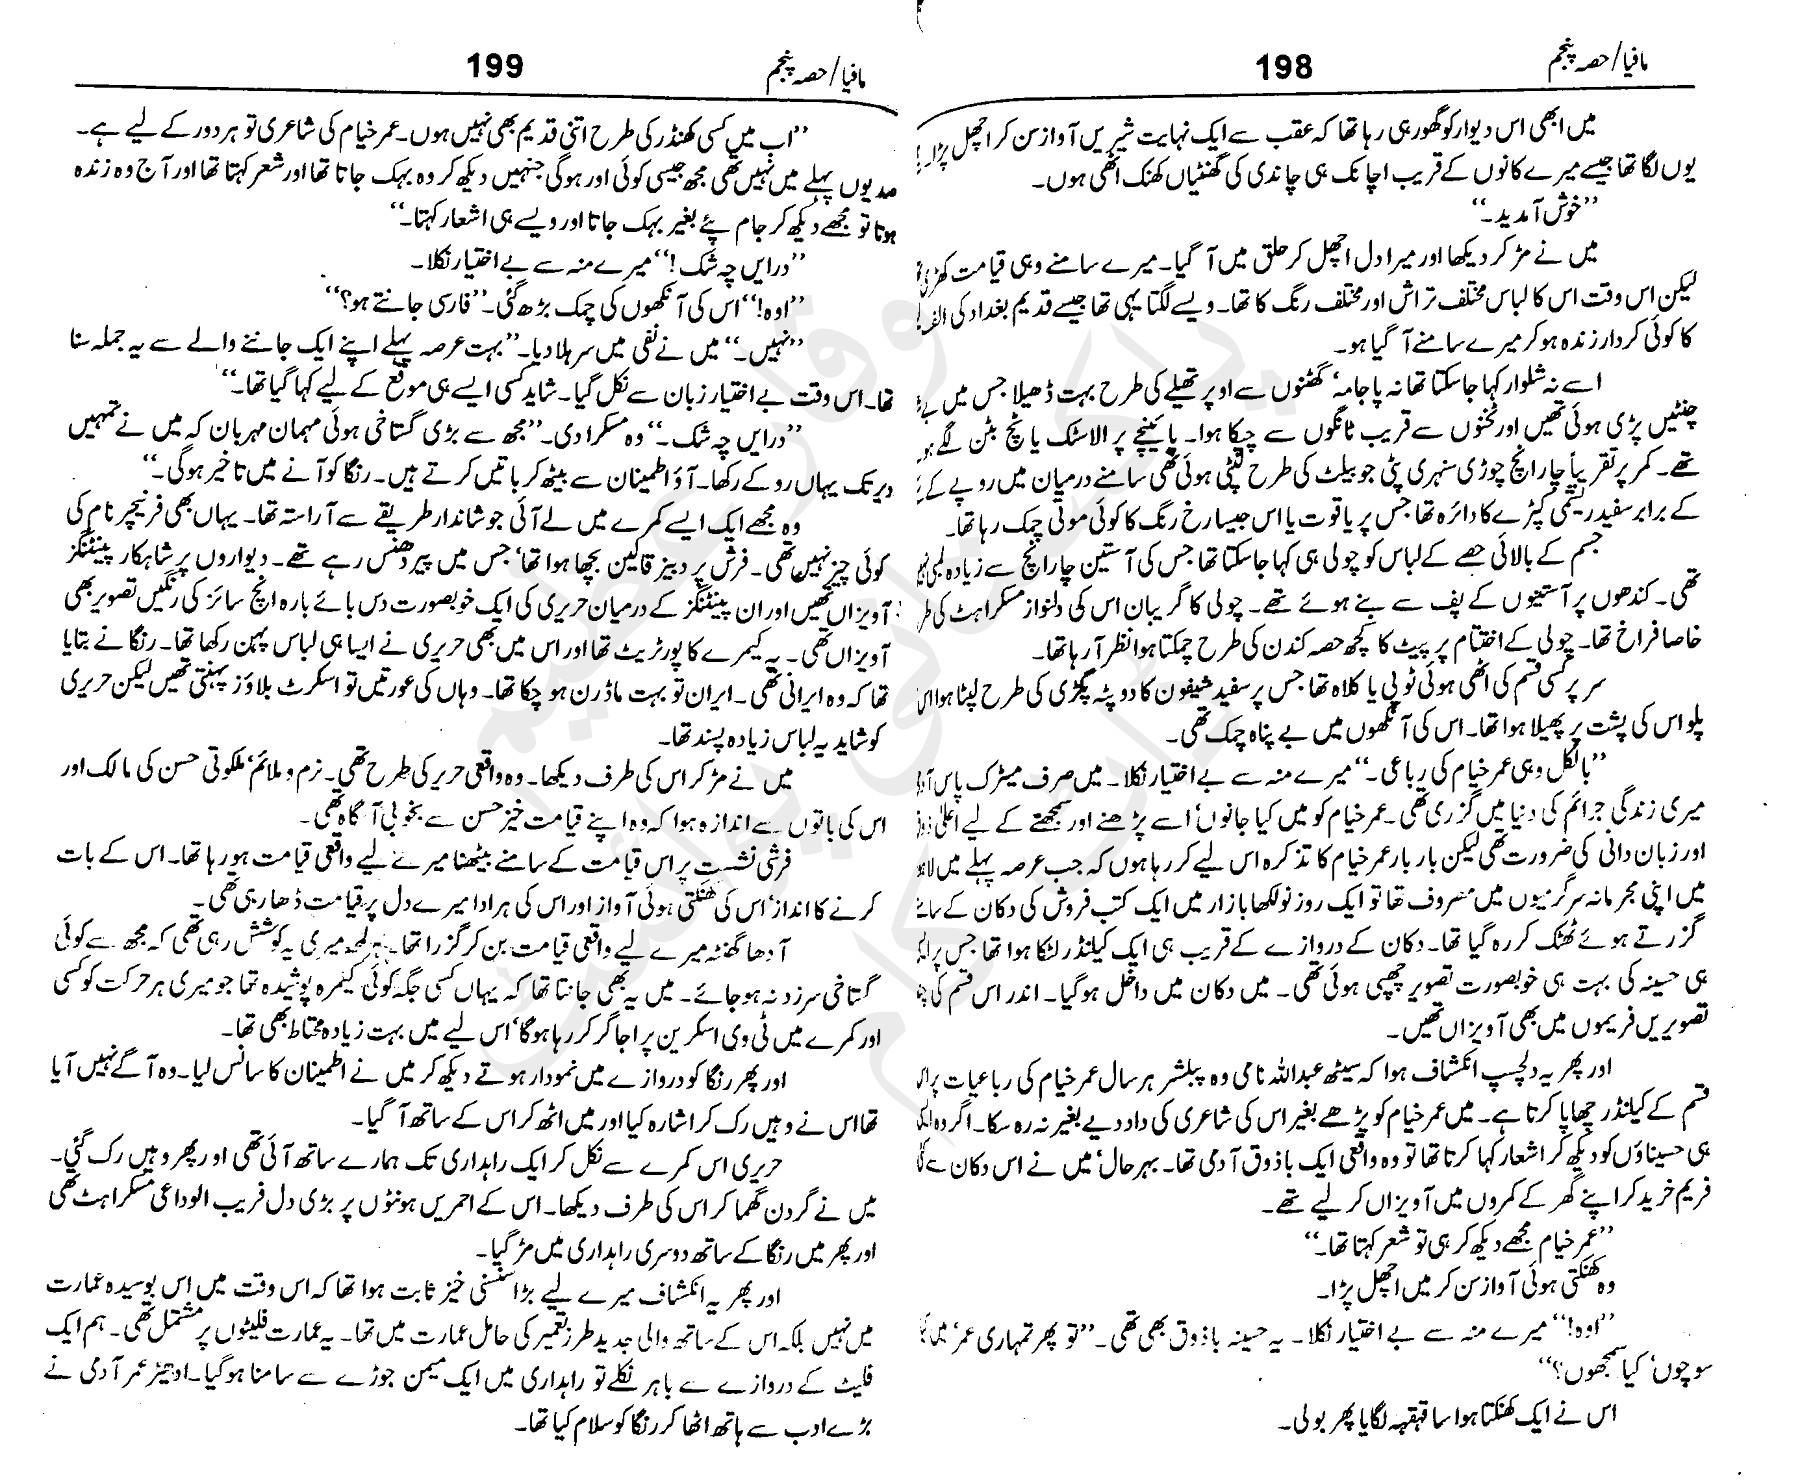 مافیا/حصہ پنجم 198
میں ابھی اس دیوار کو گھور ہی رہا تھا کہ عقب سے ایک نہایت شیریں آواز سن کر اچھل پڑا۔
یوں لگا تھا جیسے میرے کانوں کے قریب اچانک ہی چاندی کی گھنٹیاں کھنک اٹھی ہوں۔
”خوش آمدید۔“
میں نے مڑ کر دیکھا اور میرا دل اچھل کر حلق میں آ گیا۔ میرے سامنے وہی قیامت کھڑی
لیکن اس وقت اس کا لباس مختلف تراش اور مختلف رنگ کا تھا۔ ویسے لگتا یہی تھا جیسے قدیم بغداد کی الف
کا کوئی کردار زندہ ہو کر میرے سامنے آ گیا ہو۔
اسے نہ شلوار کہا جا سکتا تھا نہ پاجامہ‘ گھٹنوں سے اوپر تھیلے کی طرح بہت ڈھیلا جس میں
چنٹیں پڑی ہوئی تھیں اور ٹخنوں سے قریب ٹانگوں سے چپکا ہوا۔ پائینچے پر الاسٹک یا پانچ بٹن لگے
تھے۔ کمر پر تقریباً چار انچ چوڑی سنہری پٹی جو بیلٹ کی طرح لپٹی ہوئی تھی سامنے درمیان میں روپے کے
کے برابر سفید ریشمی کپڑے کا دائرہ تھا جس پر یاقوت یا اس جیسا رخ رنگ کا کوئی موتی چمک رہا تھا۔
جسم کے بالائی حصے کے لباس کو چولی ہی کہا جا سکتا تھا جس کی آستین چار انچ سے زیادہ لمبی
تھی۔ کندھوں پر آستینوں کے پف سے بنے ہوئے تھے۔ چولی کا گریبان اس کی دلنواز مسکراہٹ کی
خاصا فراخ تھا۔ چولی کے اختتام پر پیٹ کا کچھ حصہ کندن کی طرح چمکتا ہوا نظر آ رہا تھا۔
سر پر کسی قسم کی اٹھی ہوئی ٹوپی یا کلاہ تھا جس پر سفید شیفون کا دوپٹہ پگڑی کی طرح لپٹا ہوا
پلو اس کی پشت پر پھیلا ہوا تھا۔ اس کی آنکھوں میں بے پناہ چمک تھی۔
”بالکل وہی عمر خیام کی رباعی۔“ میرے منہ سے بے اختیار نکلا۔ میں صرف میٹرک پاس
میری زندگی جرائم کی دنیا میں گزری تھی۔ عمر خیام کو میں کیا جانوں‘ اسے پڑھنے اور سمجھنے کے لیے اعلیٰ
اور زبان دانی کی ضرورت تھی لیکن بار بار عمر خیام کا تذکرہ اس لیے کر رہا ہوں کہ جب عرصہ پہلے میں
میں اپنی مجرمانہ سرگرمیوں میں مصروف تھا تو ایک روز نولکھا بازار میں ایک کتب فروش کی دکان کے
گزرتے ہوئے ٹھٹک کر رہ گیا تھا۔ دکان کے دروازے کے قریب ہی ایک کیلنڈر لٹکا ہوا تھا جس پر
ہی حسینہ کی بہت ہی خوبصورت تصویر چھپی ہوئی تھی۔ میں دکان میں داخل ہو گیا۔ اندر اس قسم کی
تصویریں فریموں میں بھی آویزاں تھیں۔
اور پھر یہ دلچسپ انکشاف ہوا کہ سیٹھ عبداللہ نامی وہ پبلشر ہر سال عمر خیام کی رباعیات پر
قسم کے کیلنڈر چھاپا کرتا ہے۔ میں عمر خیام کو پڑھے بغیر اس کی شاعری کی داد دیے بغیر نہ رہ سکا۔ اگر وہ
ہی حسیناؤں کو دیکھ کر اشعار کہا کرتا تھا تو وہ واقعی ایک باذوق آدمی تھا۔ بہر حال‘ میں نے اس دکان سے
فریم خرید کر اپنے گھر کے کمروں میں آویزاں کر لیے تھے۔
”عمر خیام مجھے دیکھ کر ہی تو شعر کہتا تھا۔“
وہ کھنکتی ہوئی آواز سن کر میں اچھل پڑا۔
”اوہ!“ میرے منہ سے بے اختیار نکلا۔ یہ حسینہ باذوق بھی تھی۔ ”تو پھر تمہاری عمر‘ میں
سوچوں‘ کیا سمجھوں؟“
اس نے ایک کھنکتا ہوا سا قہقہہ لگایا پھر بولی۔
مافیا/حصہ پنجم 199
”اب میں کسی کھنڈر کی طرح اتنی قدیم بھی نہیں ہوں۔ عمر خیام کی شاعری تو ہر دور کے لیے ہے۔
صدیوں پہلے میں نہیں تھی مجھ جیسی کوئی اور ہوگی جنہیں دیکھ کر وہ بہک جاتا تھا اور شعر کہتا تھا اور آج وہ زندہ
ہوتا تو مجھے دیکھ کر جام پئے بغیر بہک جاتا اور ویسے ہی اشعار کہتا۔“
”دریں چہ شک!“ میرے منہ سے بے اختیار نکلا۔
”اوہ!“ اس کی آنکھوں کی چمک بڑھ گئی۔ ”فارسی جانتے ہو؟“
”نہیں۔“ میں نے نفی میں سر ہلا دیا۔ ”بہت عرصہ پہلے اپنے ایک جاننے والے سے یہ جملہ سنا
تھا۔ اس وقت بے اختیار زبان سے نکل گیا۔ شاید کسی ایسے ہی موقع کے لیے کہا گیا تھا۔“
”درایں چہ شک۔“ وہ مسکرا دی۔ ”مجھ سے بڑی گستاخی ہوئی مہمان مہربان کہ میں نے تمہیں
دیر تک یہاں روکے رکھا۔ آؤ اطمینان سے بیٹھ کر باتیں کرتے ہیں۔ رنگا کو آنے میں تاخیر ہوگی۔“
وہ مجھے ایک ایسے کمرے میں لے آئی جو شاندار طریقے سے آراستہ تھا۔ یہاں بھی فرنیچر نام کی
کوئی چیز نہیں تھی۔ فرش پر دبیز قالین بچھا ہوا تھا‘ جس میں پیر دھنس رہے تھے۔ دیواروں پر شاہکار پینٹنگز
آویزاں تھیں اور ان پینٹنگز کے درمیان حریری کی ایک خوبصورت دس بائے بارہ انچ سائز کی رنگین تصویر بھی
آویزاں تھی۔ یہ کیمرے کا پورٹریٹ تھا اور اس میں بھی حریری نے ایسا ہی لباس پہن رکھا تھا۔ رنگا نے بتایا
تھا کہ وہ ایرانی تھی۔ ایران تو بہت ماڈرن ہو چکا تھا۔ وہاں کی عورتیں تو اسکرٹ بلاؤز پہنتی تھیں لیکن حریری
کو شاید یہ لباس زیادہ پسند تھا۔
میں نے مڑ کر اس کی طرف دیکھا۔ وہ واقعی حریر کی طرح تھی۔ نرم و ملائم‘ ملکوتی حسن کی مالک اور
اس کی باتوں سے اندازہ ہوا کہ وہ اپنے قیامت خیز حسن سے بخوبی آگاہ تھی۔
فرشی نشست پر اس قیامت کے سامنے بیٹھنا میرے لیے واقعی قیامت ہو رہا تھا۔ اس کے بات
کرنے کا انداز‘ اس کی کھنکتی ہوئی آواز اور اس کی ہر ادا میرے دل پر قیامت ڈھا رہی تھی۔
آدھا گھنٹہ میرے لیے واقعی قیامت بن کر گزرا تھا۔ ہر لمحہ میری یہ کوشش رہی تھی کہ مجھ سے کوئی
گستاخی سرزد نہ ہو جائے۔ میں یہ بھی جانتا تھا کہ یہاں کسی جگہ کوئی کیمرہ پوشیدہ تھا جو میری ہر حرکت کو کسی
اور کمرے میں ٹی وی اسکرین پر اجاگر کر رہا ہوگا‘ اس لیے میں بہت زیادہ محتاط بھی تھا۔
اور پھر رنگا کو دروازے میں نمودار ہوتے دیکھ کر میں نے اطمینان کا سانس لیا۔ وہ آگے نہیں آیا
تھا اس نے وہیں رک کر اشارہ کیا اور میں اٹھ کر اس کے ساتھ آ گیا۔
حریری اس کمرے سے نکل کر ایک راہداری تک ہمارے ساتھ آئی تھی اور پھر وہیں رک گئی۔
میں نے گردن گھما کر اس کی طرف دیکھا۔ اس کے احمریں ہونٹوں پر بڑی دل فریب الوداعی مسکراہٹ تھی
اور پھر میں رنگا کے ساتھ دوسری راہداری میں مڑ گیا۔
اور پھر یہ انکشاف میرے لیے بڑا سنسنی خیز ثابت ہوا تھا کہ اس وقت میں اس بوسیدہ عمارت
میں نہیں بلکہ اس کے ساتھ والی جدید طرز تعمیر کی حامل عمارت میں تھا۔ یہ عمارت فلیٹوں پر مشتمل تھی۔ ہم ایک
فلیٹ کے دروازے سے باہر نکلے تو راہداری میں ایک میمن جوڑے سے سامنا ہو گیا۔ ادھیڑ عمر آدمی نے
بڑے ادب سے ہاتھ اٹھا کر رنگا کو سلام کیا تھا۔